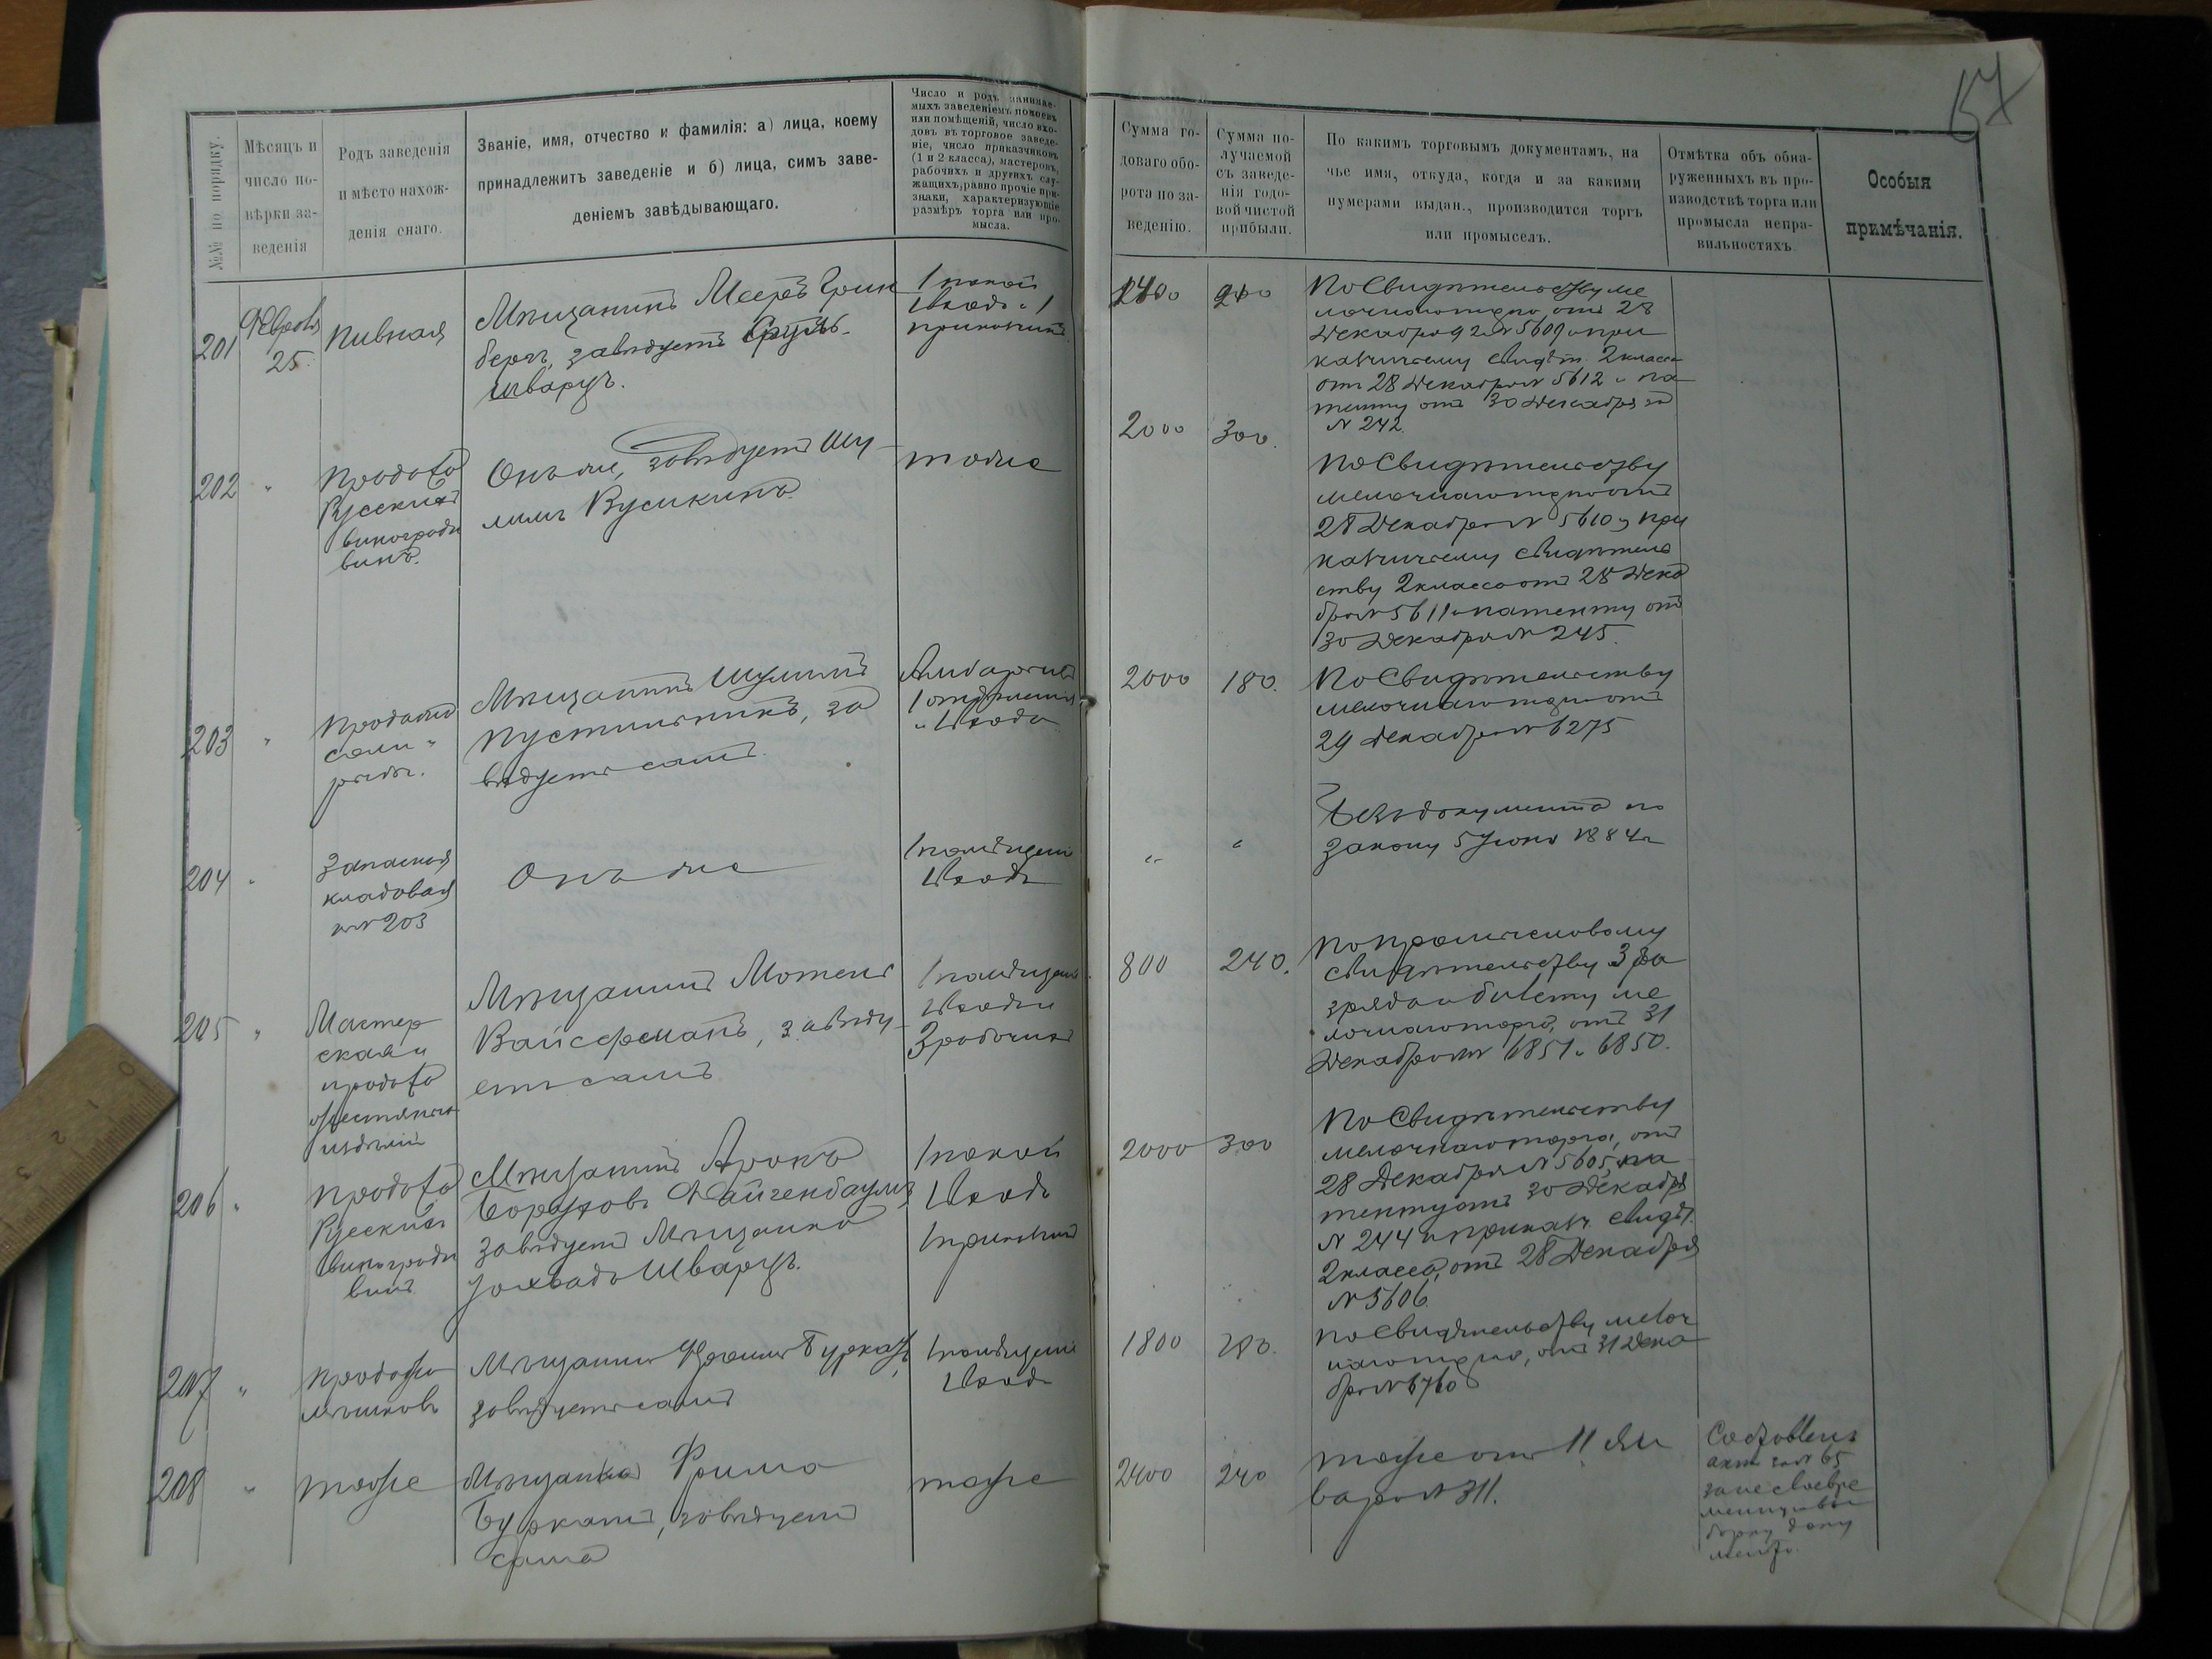 57
№№ по порядку.
Мѣсяцъ и
число по-
вѣрки за-
веденія
Родъ заведенія
и мѣсто нахож-
денія онаго.
Званіе, имя, отчество и фамилія: а) лица, коему
принадлежитъ заведеніе и б) лица, симъ заве-
деніемъ завѣдывающаго.
Число и родъ занимае-
мыхъ заведеніемъ покоевъ
или помѣщеній, число вхо-
довъ въ торговое заведе-
ніе, число приказчиковъ
(1 и 2 класса), мастеровъ,
рабочихъ и другихъ слу-
жащихъ, равно прочіе при-
знаки, характеризующіе
размѣръ торга или про-
мысла.
Сумма го-
доваго обо-
рота по за-
веденію.
Сумма по-
лучаемой
съ заведе-
нія годо-
вой чистой
прибыли.
По какимъ торговымъ документамъ, на
чье имя, откуда, когда и за какими
нумерами выдан., производится торгъ
или промыселъ.
Отмѣтка объ обна-
руженныхъ въ про-
изводствѣ торга или
промысла непра-
вильностяхъ
Особыя
примѣчанія.
201
Февраля
25
Пивная
Мѣщанинъ Мееръ Грин
бергъ, завѣдуетъ
Шварцъ.
1 покой
1 входъ и 1
прикащикъ
2400
240
По Свидѣтельству ме
лочнаго торга, отъ 28
Декабря 92 г. N 5609 и при
кащичьему свидѣт. 2 класса
отъ 28 Декабря N 5612 и па
тенту отъ 30 Декабря за
N 242
202
"
Продажа
Русскихъ
виноградн
винъ.
Онъ же, завѣдуетъ Шу
лимъ Вусикинъ
тоже
2000
300.
По Свидѣтельству
мелочнаго торга отъ
28 Декабря N 5610 и при
кащичьему свидѣтель
ству 2 класса отъ 28 Дека
бря N 5611 и патенту отъ
30 Декабря N 245.
203
"
Продажа
соли и
рыбы.
Мѣщанинъ Шулимъ
Пустильникъ, за
вѣдуетъ самъ.
1 отдѣленіе
и 1 входъ
2000
180.
По Свидѣтельству
мелочнаго торга отъ
29 Декабря N 6275
204
"
Запасная
кладовая
къ N 203
Онъ же
1 помѣщеніе
1 входъ
"
"
Безъ документа по
закону 5 Іюня 1884 г.
205
"
Мастер
ская и
продажа
жестяныхъ
издѣлій
Мѣщанинъ Мотель
Вайсерманъ, завѣду
етъ самъ
1 помѣщеніе
1 входъ и
3 рабочихъ
800
240.
По промысловому
свидѣтельству 3 ра
зряда и билету ме
лочнаго торга, отъ 31
Декабря NN 6851 и 6850.
206
"
Продажа
Русскихъ
виноградн
винъ
Мѣщанинъ Аронъ
Боруховъ Файгенбаумъ
завѣдуетъ Мѣщанка
Іохвадъ Шварцъ.
1 покой
1 входъ
1 прикащикъ
2000
300
По Свидѣтельству
мелочнаго торга, отъ
28 Декабря N 5605, па
тенту отъ 30 Декабря
N 244 и приказч. свидѣт.
2 класса, отъ 28 Декабря
N 5606
207
"
Продажа
мѣшковъ
Мѣщанинъ Фроимъ Буркатъ,
завѣдуетъ самъ
1 помѣщеніе
1 входъ
1800
180.
По свидѣтельству мелоч
наго торга, отъ 31 Дека
бря N 6760
208
"
тоже
Мѣщанка Фрима
Буркатъ, завѣдуетъ
сама
тоже
2400
240
тоже отъ 11 Ян
варя N 311.
Составленъ
актъ за N 65
за несвоевре
менную вы
борку доку
мента.